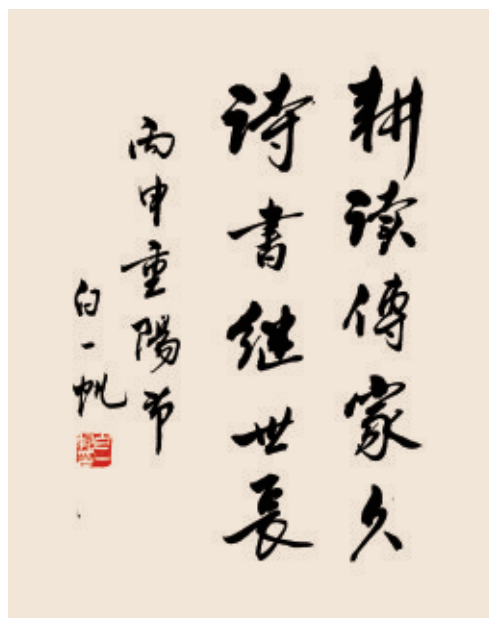 耕读傳家久
诗書继世長
丙申重陽节
白一帆